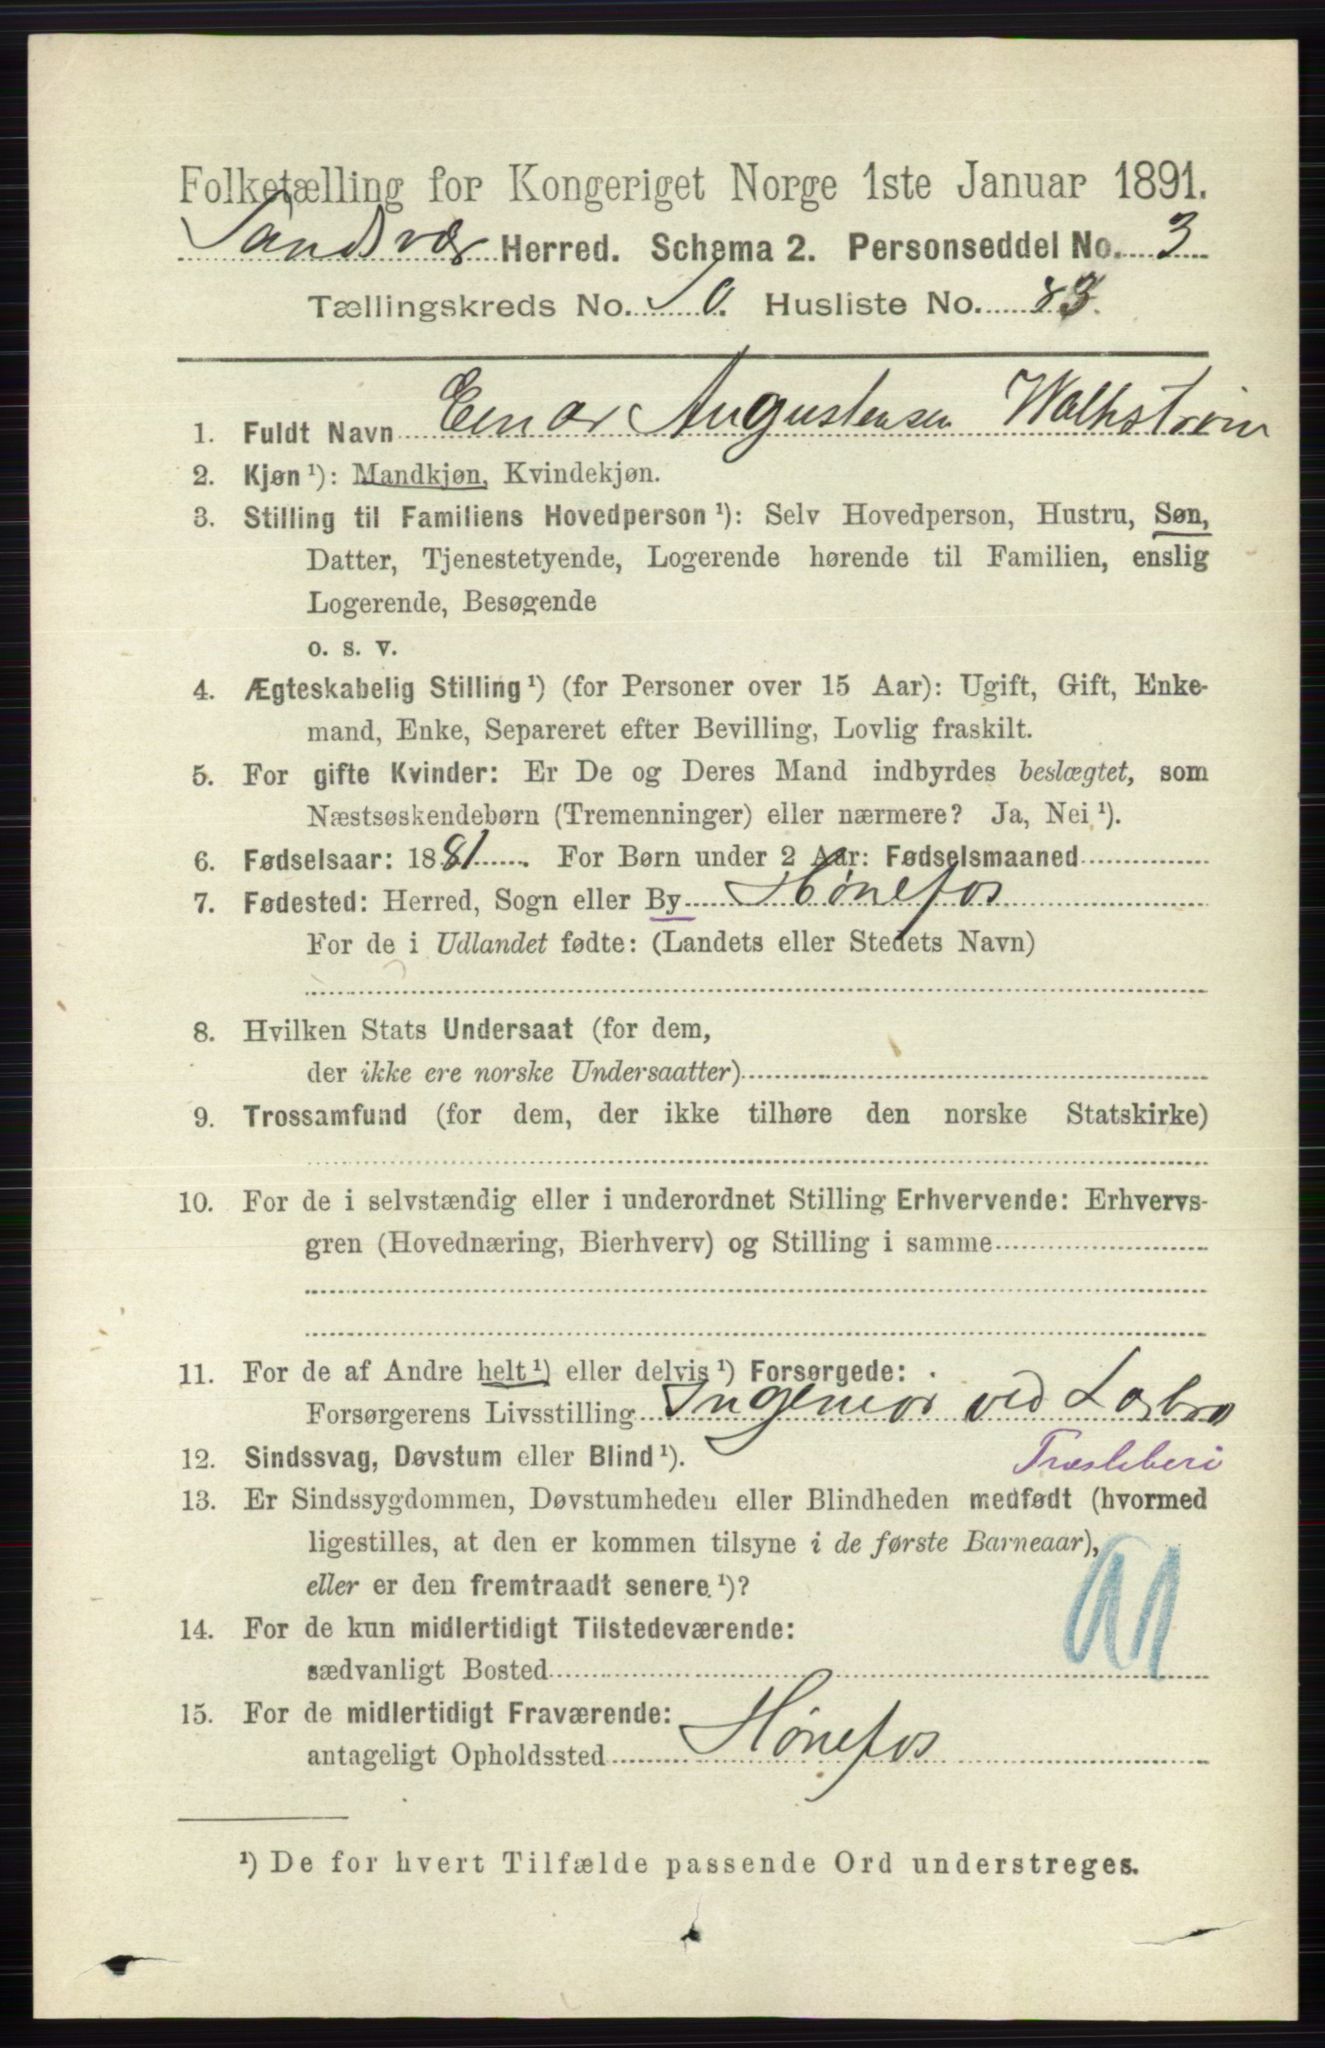 Folketælling for Kongeriget Norge 1ste Januar 1891.
Sandsvær Herred. Schema 2. Personseddel No. 3
Tællingskreds No. 10. Husliste No. 83.
1. Fuldt Navn Einar Augustensen Walhstrøm
2. Kjøn ¹): Mandkjøn, Kvindekjøn.
3. Stilling til Familiens Hovedperson ¹): Selv Hovedperson, Hustru, Søn,
Datter, Tjenestetyende, Logerende hørende til Familien, enslig
Logerende, Besøgende
o. s. v.
4. Ægteskabelig Stilling ¹) (for Personer over 15 Aar): Ugift, Gift, Enke-
mand, Enke, Separeret efter Bevilling, Lovlig fraskilt.
5. For gifte Kvinder: Er De og Deres Mand indbyrdes beslægtet, som
Næstsøskendebørn (Tremenninger) eller nærmere? Ja, Nei ¹).
6. Fødselsaar: 1881. For Børn under 2 Aar: Fødselsmaaned
7. Fødested: Herred, Sogn eller By Hønefos
For de i Udlandet fødte: (Landets eller Stedets Navn)
8. Hvilken Stats Undersaat (for dem,
der ikke ere norske Undersaatter)
9. Trossamfund (for dem, der ikke tilhøre den norske Statskirke)
10. For de i selvstændig eller i underordnet Stilling Erhvervende: Erhvervs-
gren (Hovednæring, Bierhverv) og Stilling i samme
11. For de af Andre helt ¹) eller delvis ¹) Forsørgede:
Forsørgerens Livsstilling Ingeniør ved Labro
12. Sindssvag, Døvstum eller Blind ¹). Træsliberi
13. Er Sindssygdommen, Døvstumheden eller Blindheden medfødt (hvormed
ligestilles, at den er kommen tilsyne i de første Barneaar),
eller er den fremtraadt senere ¹)?
14. For de kun midlertidigt Tilstedeværende:
sædvanligt Bosted
15. For de midlertidigt Fraværende:
antageligt Opholdssted Hønefos
¹) De for hvert Tilfælde passende Ord understreges.